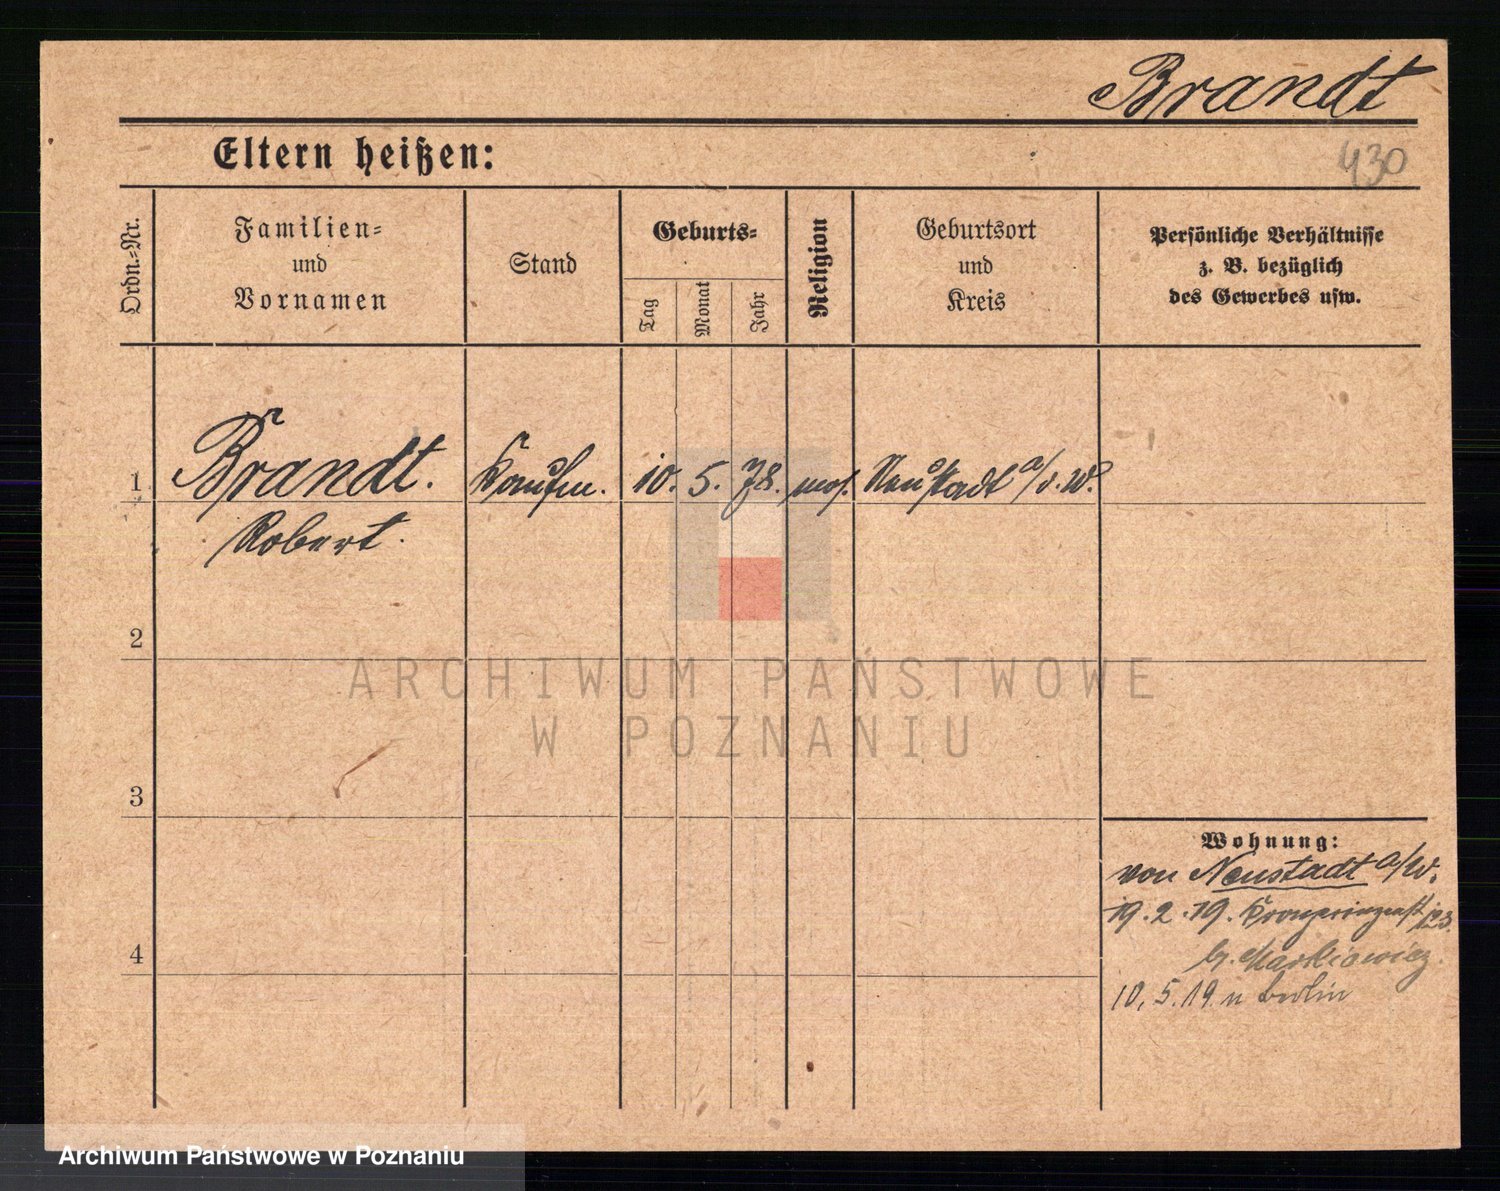 Brandt
430
Eltern heißen:
Ordn.-Nr.
Familien-
und
Vornamen
Stand
Geburts-
Tag
Monat
Jahr
Religion
Geburtsort
und
Kreis
Persönliche Verhältnisse
z. B. bezüglich
des Gewerbes usw.
1 Brandt. Kaufm. 10. 5. 78. mos. Neustadt a/d. W.
Robert.
2
3
4
Wohnung:
von Neustadt a/W.
19. 2. 19. Kronprinzenst 123.
b. Markiewicz.
10. 5. 19 n Berlin
ARCHIWUM PAŃSTWOWE
W POZNANIU
Archiwum Państwowe w Poznaniu